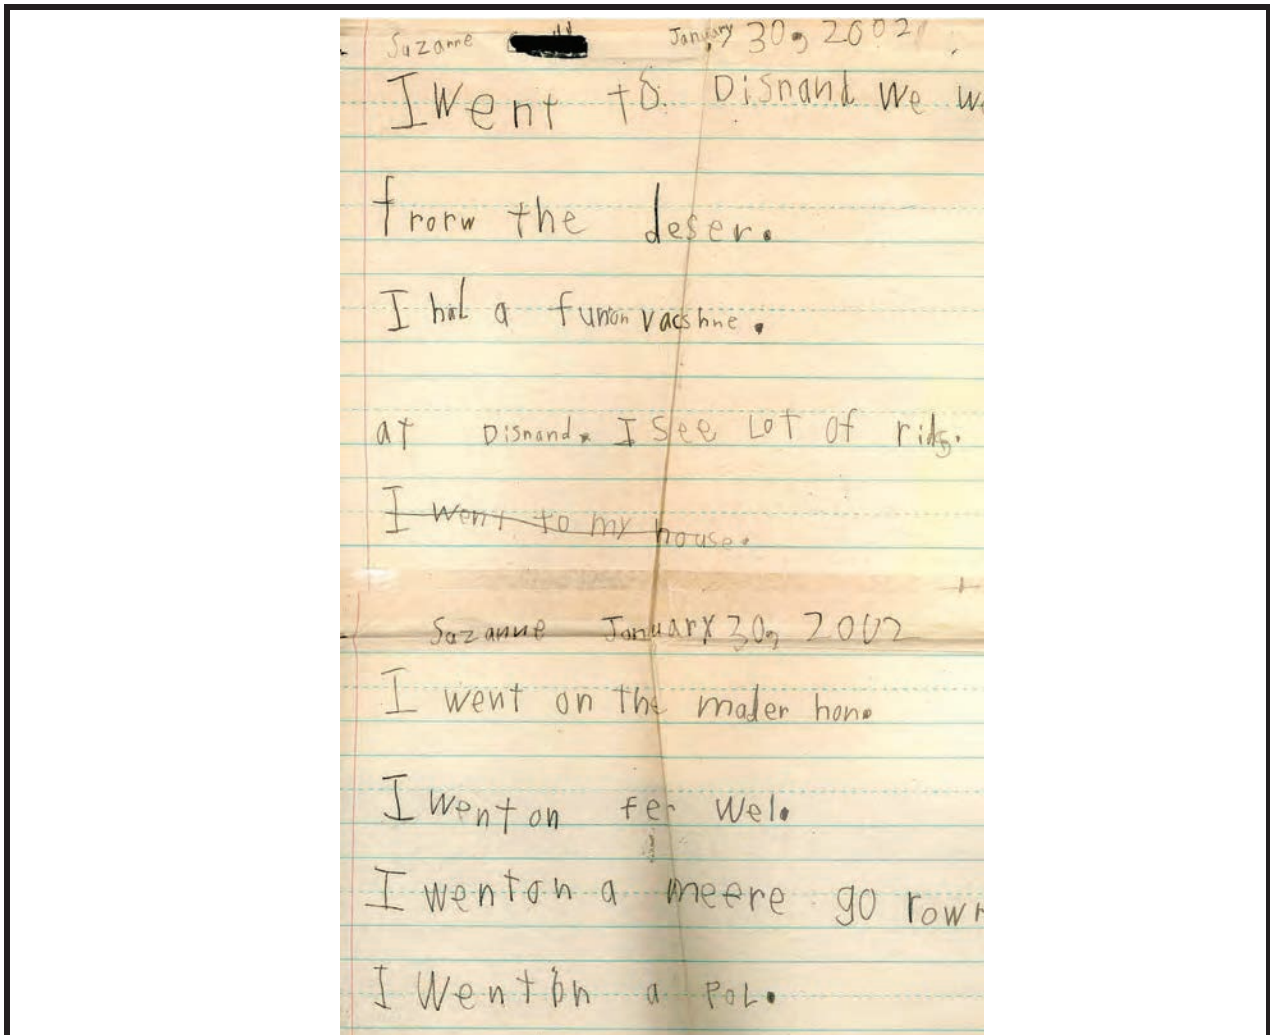 Suzanne January 30, 2002
I went to Disnand We
frorw the deser.
I had a funon vacshne.
at Disnand. I see LoT of rids.
I went to my house.
Suzanne January 30, 2002
I went on the mader hon.
I went on fer wel.
I went on a meere go rown
I went on a poL.